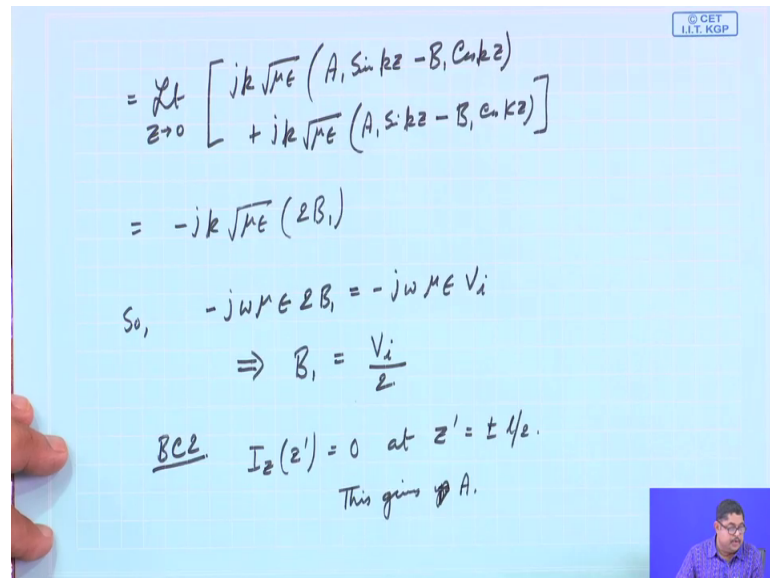 © CET
I.I.T. KGP
= Lt z→0 [ jk √με (A₁ Sin kz - B₁ Cos kz)
+ jk √με (A₁ Sin kz - B₁ Cos kz) ]
= -jk √με (2B₁)
So, -jω με 2B₁ = -jω με Vi
⇒ B₁ = Vi/2
BC2. Iz(z') = 0 at z' = ± l/2.
This gives A.